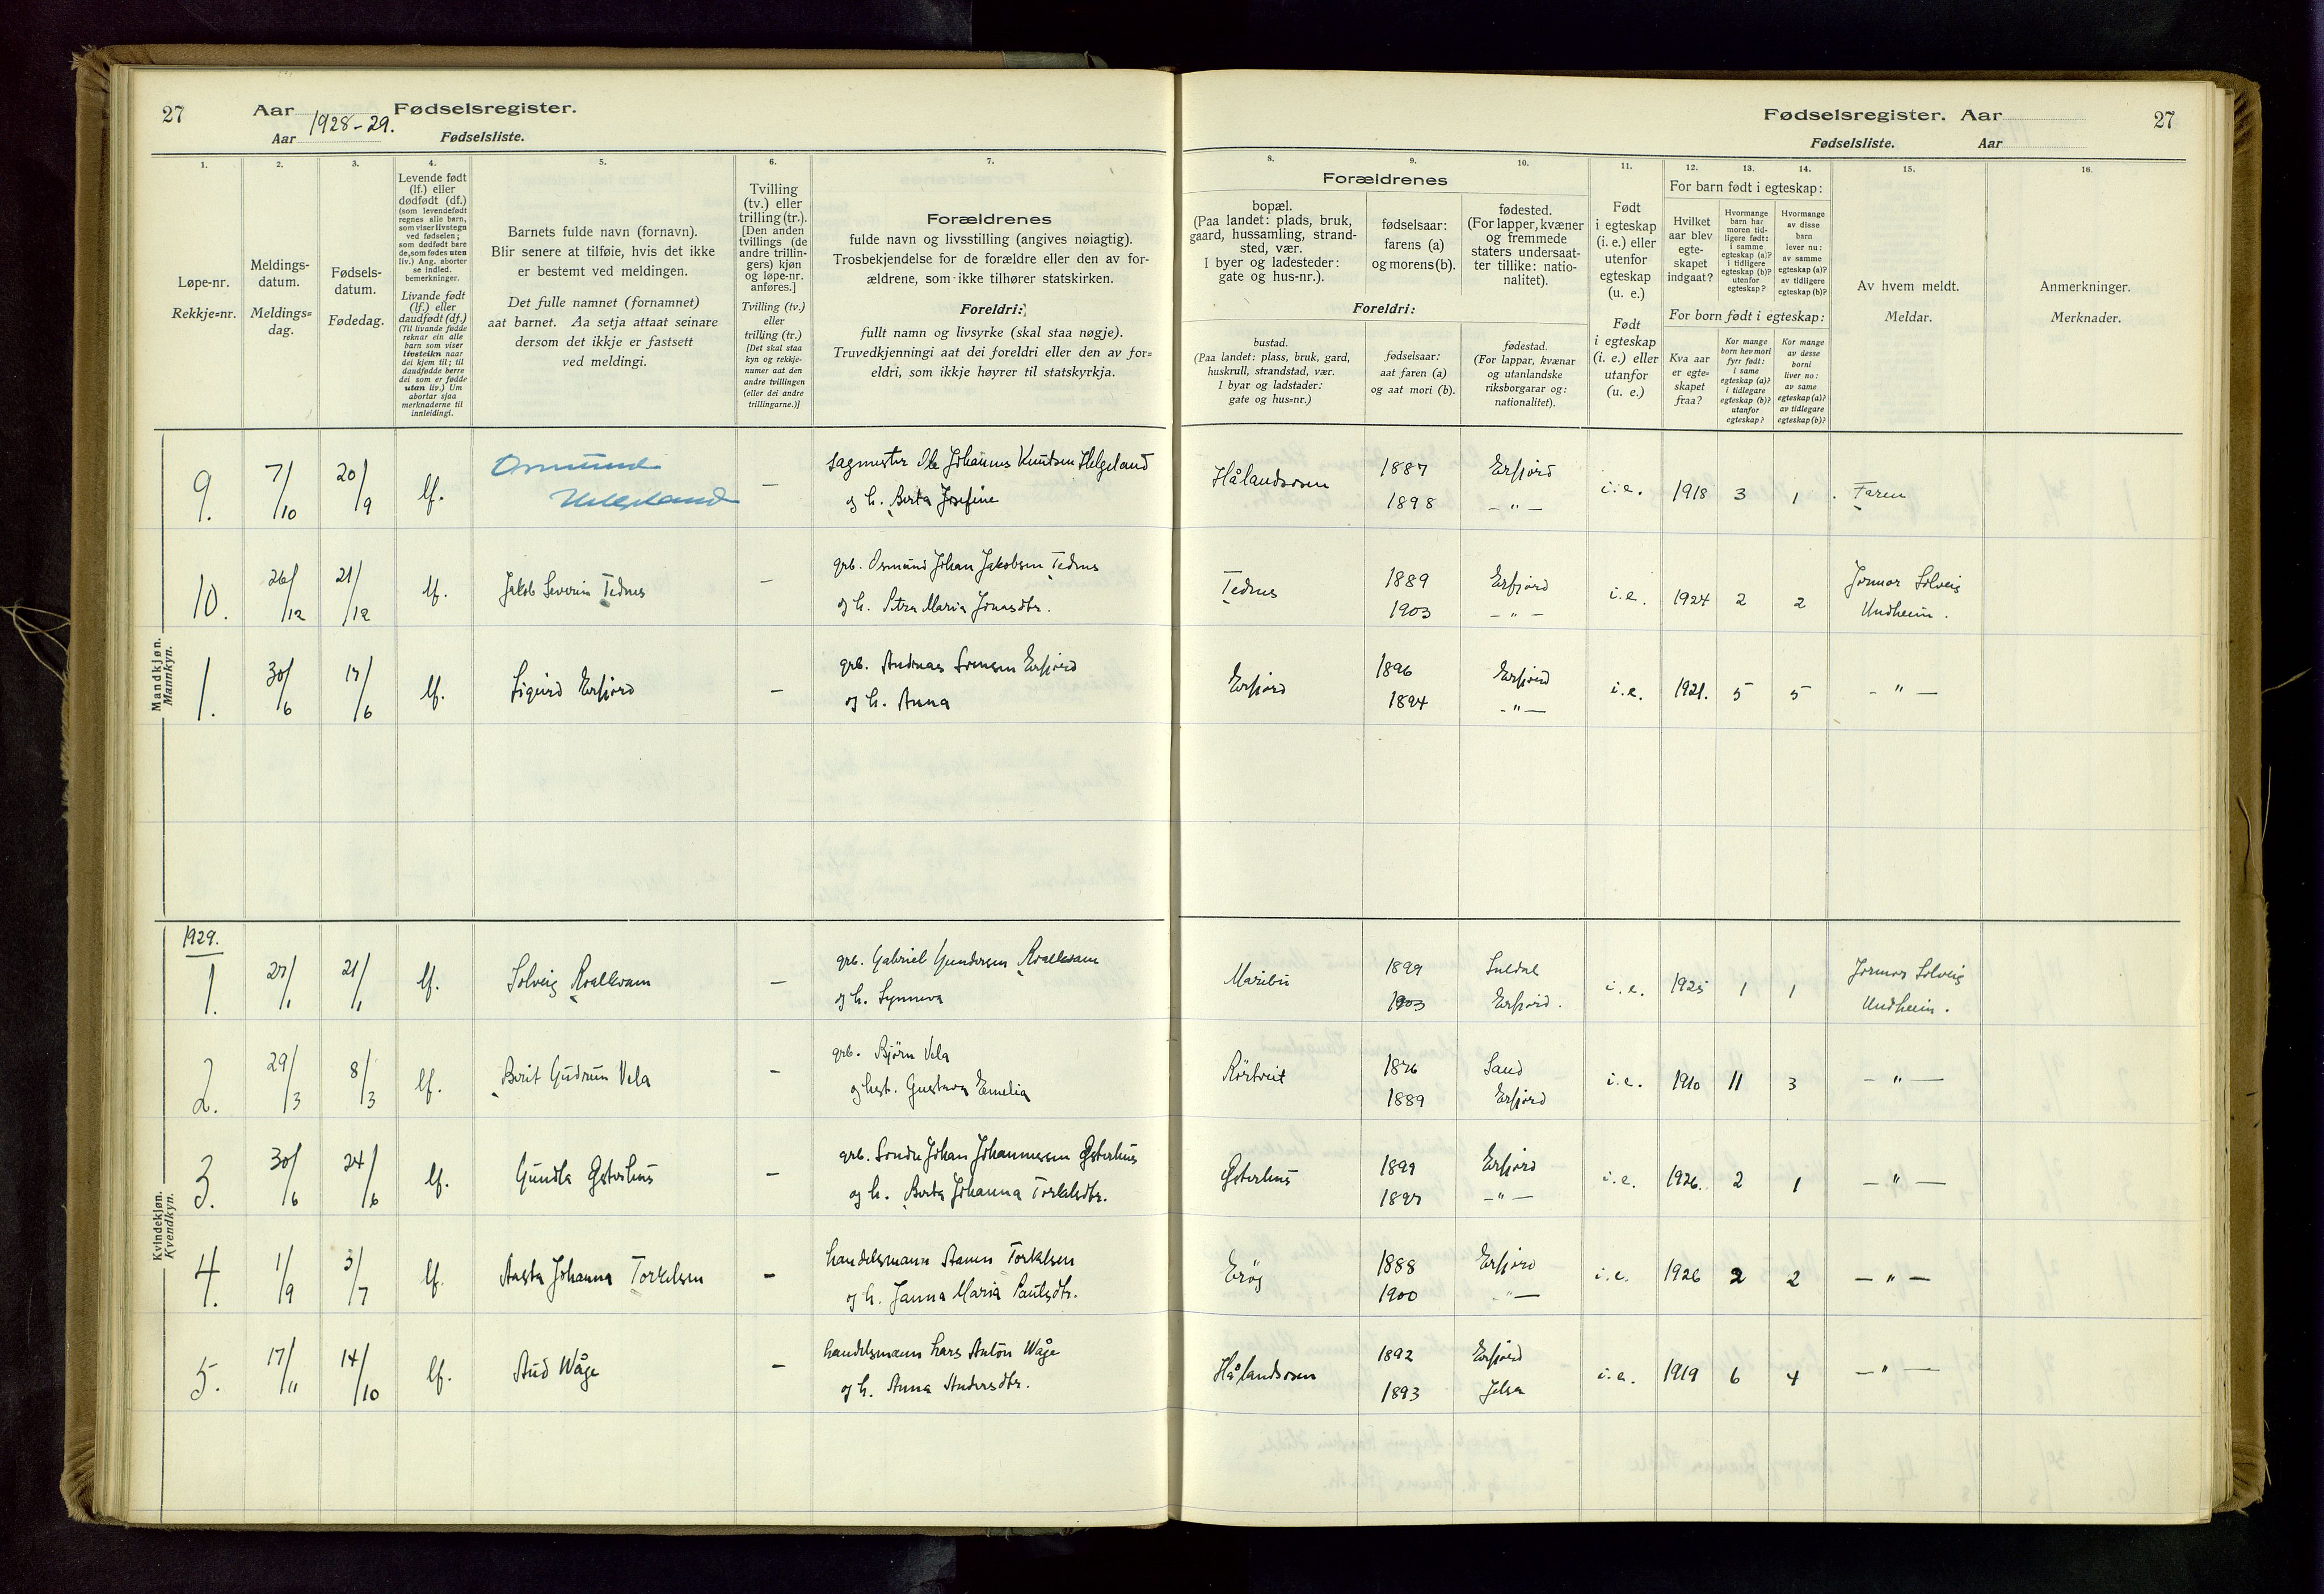 27 Aar Fødselsregister.
Aar 1928-29. Fødselsliste.
1. 2. 3. 4. 5. 6. 7.
Løpe-nr.
Rekkje=nr.
Meldings-
datum.
Meldings=
dag.
Fødsels-
datum.
Fødedag.
Levende født
(lf.) eller
dødfødt (df.)
(som levendefødt
regnes alle barn,
som viser livstegn
ved fødselen;
som dødfødt bare
de, som fødes uten
liv.) Ang. aborter
se indled.
bemerkninger.
Livande født
(lf.) eller
daudfødt (df.)
(Til livande fødde
reknar ein alle
barn som viser
livsteikn naar
dei kjem til; til
daudfødde berre
dei som er fødde
utan liv.) Um
abortar sjaa
merknaderne til
innleidingi.
Barnets fulde navn (fornavn).
Blir senere at tilføie, hvis det ikke
er bestemt ved meldingen.
Det fulle namnet (fornamnet)
aat barnet. Aa setja attaat seinare
dersom det ikkje er fastsett
ved meldingi.
Tvilling
(tv.) eller
trilling (tr.).
[Den anden
tvillings (de
andre trillin-
gers) kjøn
og løpe-nr.
anføres.]
Tvilling (tv.)
eller
trilling (tr.)
[Det skal staa
kyn og rekkje-
numer aat den
andre tvillingen
(eller dei andre
trillingarne.)]
Forældrenes
fulde navn og livsstilling (angives nøiagtig).
Trosbekjendelse for de forældre eller den av for-
ældrene, som ikke tilhører statskirken.
Foreldri:
fullt namn og livsyrke (skal staa nøgje).
Truvedkjenningi aat dei foreldri eller den av for=
eldri, som ikkje høyrer til statskyrkja.
Mandkjøn.
Mannkyn.
9. 7/10 20/9 lf. Osmund Helgeland — sagmester Ole Johannes Knutsen Helgeland
og h. Berta Josefine
10. 26/12 21/12 lf. Jakob Severin Tednes — grb. Osmund Johan Jakobsen Tednes
og h. Petra Maria Jonasdtr.
1. 30/6 17/6 lf. Sigurd Erfjord — grb. Andreas Sørensen Erfjord
og h. Anna
Kvindekjøn.
Kvendkyn.
1929.
1. 27/1 21/1 lf. Solveig Roalkvam — grb. Gabriel Gundersen Roalkvam
og h. Synneva
2. 29/3 8/3 lf. Berit Gudrun Vela — grb. Bjørn Vela
og hust. Gustava Emelia
3. 30/6 24/6 lf. Gundla Østerhus — grb. Sondre Johan Johannessen Østerhus
og h. Berta Johanna Torkelsdtr.
4. 1/9 3/7 lf. Aasta Johanna Torkelsen — handelsmann Aamun Torkelsen
og h. Janna Maria Paulsdtr.
5. 17/11 14/10 lf. Aud Wåge — handelsmann Lars Anton Wåge
og h. Anna Andersdtr.
Fødselsregister. Aar 27
Fødselsliste. Aar
8. 9. 10. 11. 12. 13. 14. 15. 16.
Forældrenes
bopæl.
(Paa landet: plads, bruk,
gaard, hussamling, strand-
sted, vær.
I byer og ladesteder:
gate og hus-nr.).
fødselsaar:
farens (a)
og morens (b).
fødested.
(For lapper, kvæner
og fremmede
staters undersaat-
ter tillike: natio-
nalitet).
Foreldri:
bustad.
(Paa landet: plass, bruk, gard,
huskrull, strandstad, vær.
I byar og ladstader:
gate og hus=nr.)
fødselsaar:
aat faren (a)
og aat mori (b).
fødestad.
(For lappar, kvænar
og utanlandske
riksborgarar og:
nationalitet).
Født
i egteskap
(i. e.) eller
utenfor
egteskap
(u. e.)
Født
i egteskap
(i. e.) eller
utanfor
(u. e.)
For barn født i egteskap:
Hvilket
aar blev
egte-
skapet
indgaat?
Hvormange
barn har
moren tid-
ligere født:
i samme
egteskap (a)?
i tidligere
egteskap (b)?
utenfor
egteskap?
Hvormange
av disse
barn
lever nu:
av samme
egteskap (a)?
av tidligere
egteskap (b)?
For born født i egteskap:
Kva aar
er egte=
skapet
fraa?
Kor mange
born hev mori
fyrr født:
i same
egteskap (a)?
i tidlegare
egteskap (b)?
utanfor
egteskap?
Kor mange
av desse
borni
liver no:
av same
egteskap (a)?
av tidlegare
egteskap (b)?
Av hvem meldt.
Meldar.
Anmerkninger.
Merknader.
Hålandsosen 1887 Erfjord i.e. 1918 3 1 . Faren
1898 —"—
Tednes 1889 Erfjord i.e. 1924 2 2 Jormor Solveig
1903 —"— Undheim.
Erfjord 1896 Erfjord i.e. 1921. 5 5 —"—
1894 —"—
Maribu 1899 Suldal i.e. 1925 1 1 Jormor Solveig
1903 Erfjord. Undheim.
Rørtveit 1876 Sand i.e. 1910 11 3 —"—
1889 Erfjord
Østerhus 1899 Erfjord i.e. 1926. 2 1 —"—
1897 —"—
Erøy 1888 Erfjord i.e. 1926 2 2 —"—
1900 —"—
Hålandsosen 1892 Erfjord i.e. 1919 6 4 —"—
1893 Jelsa